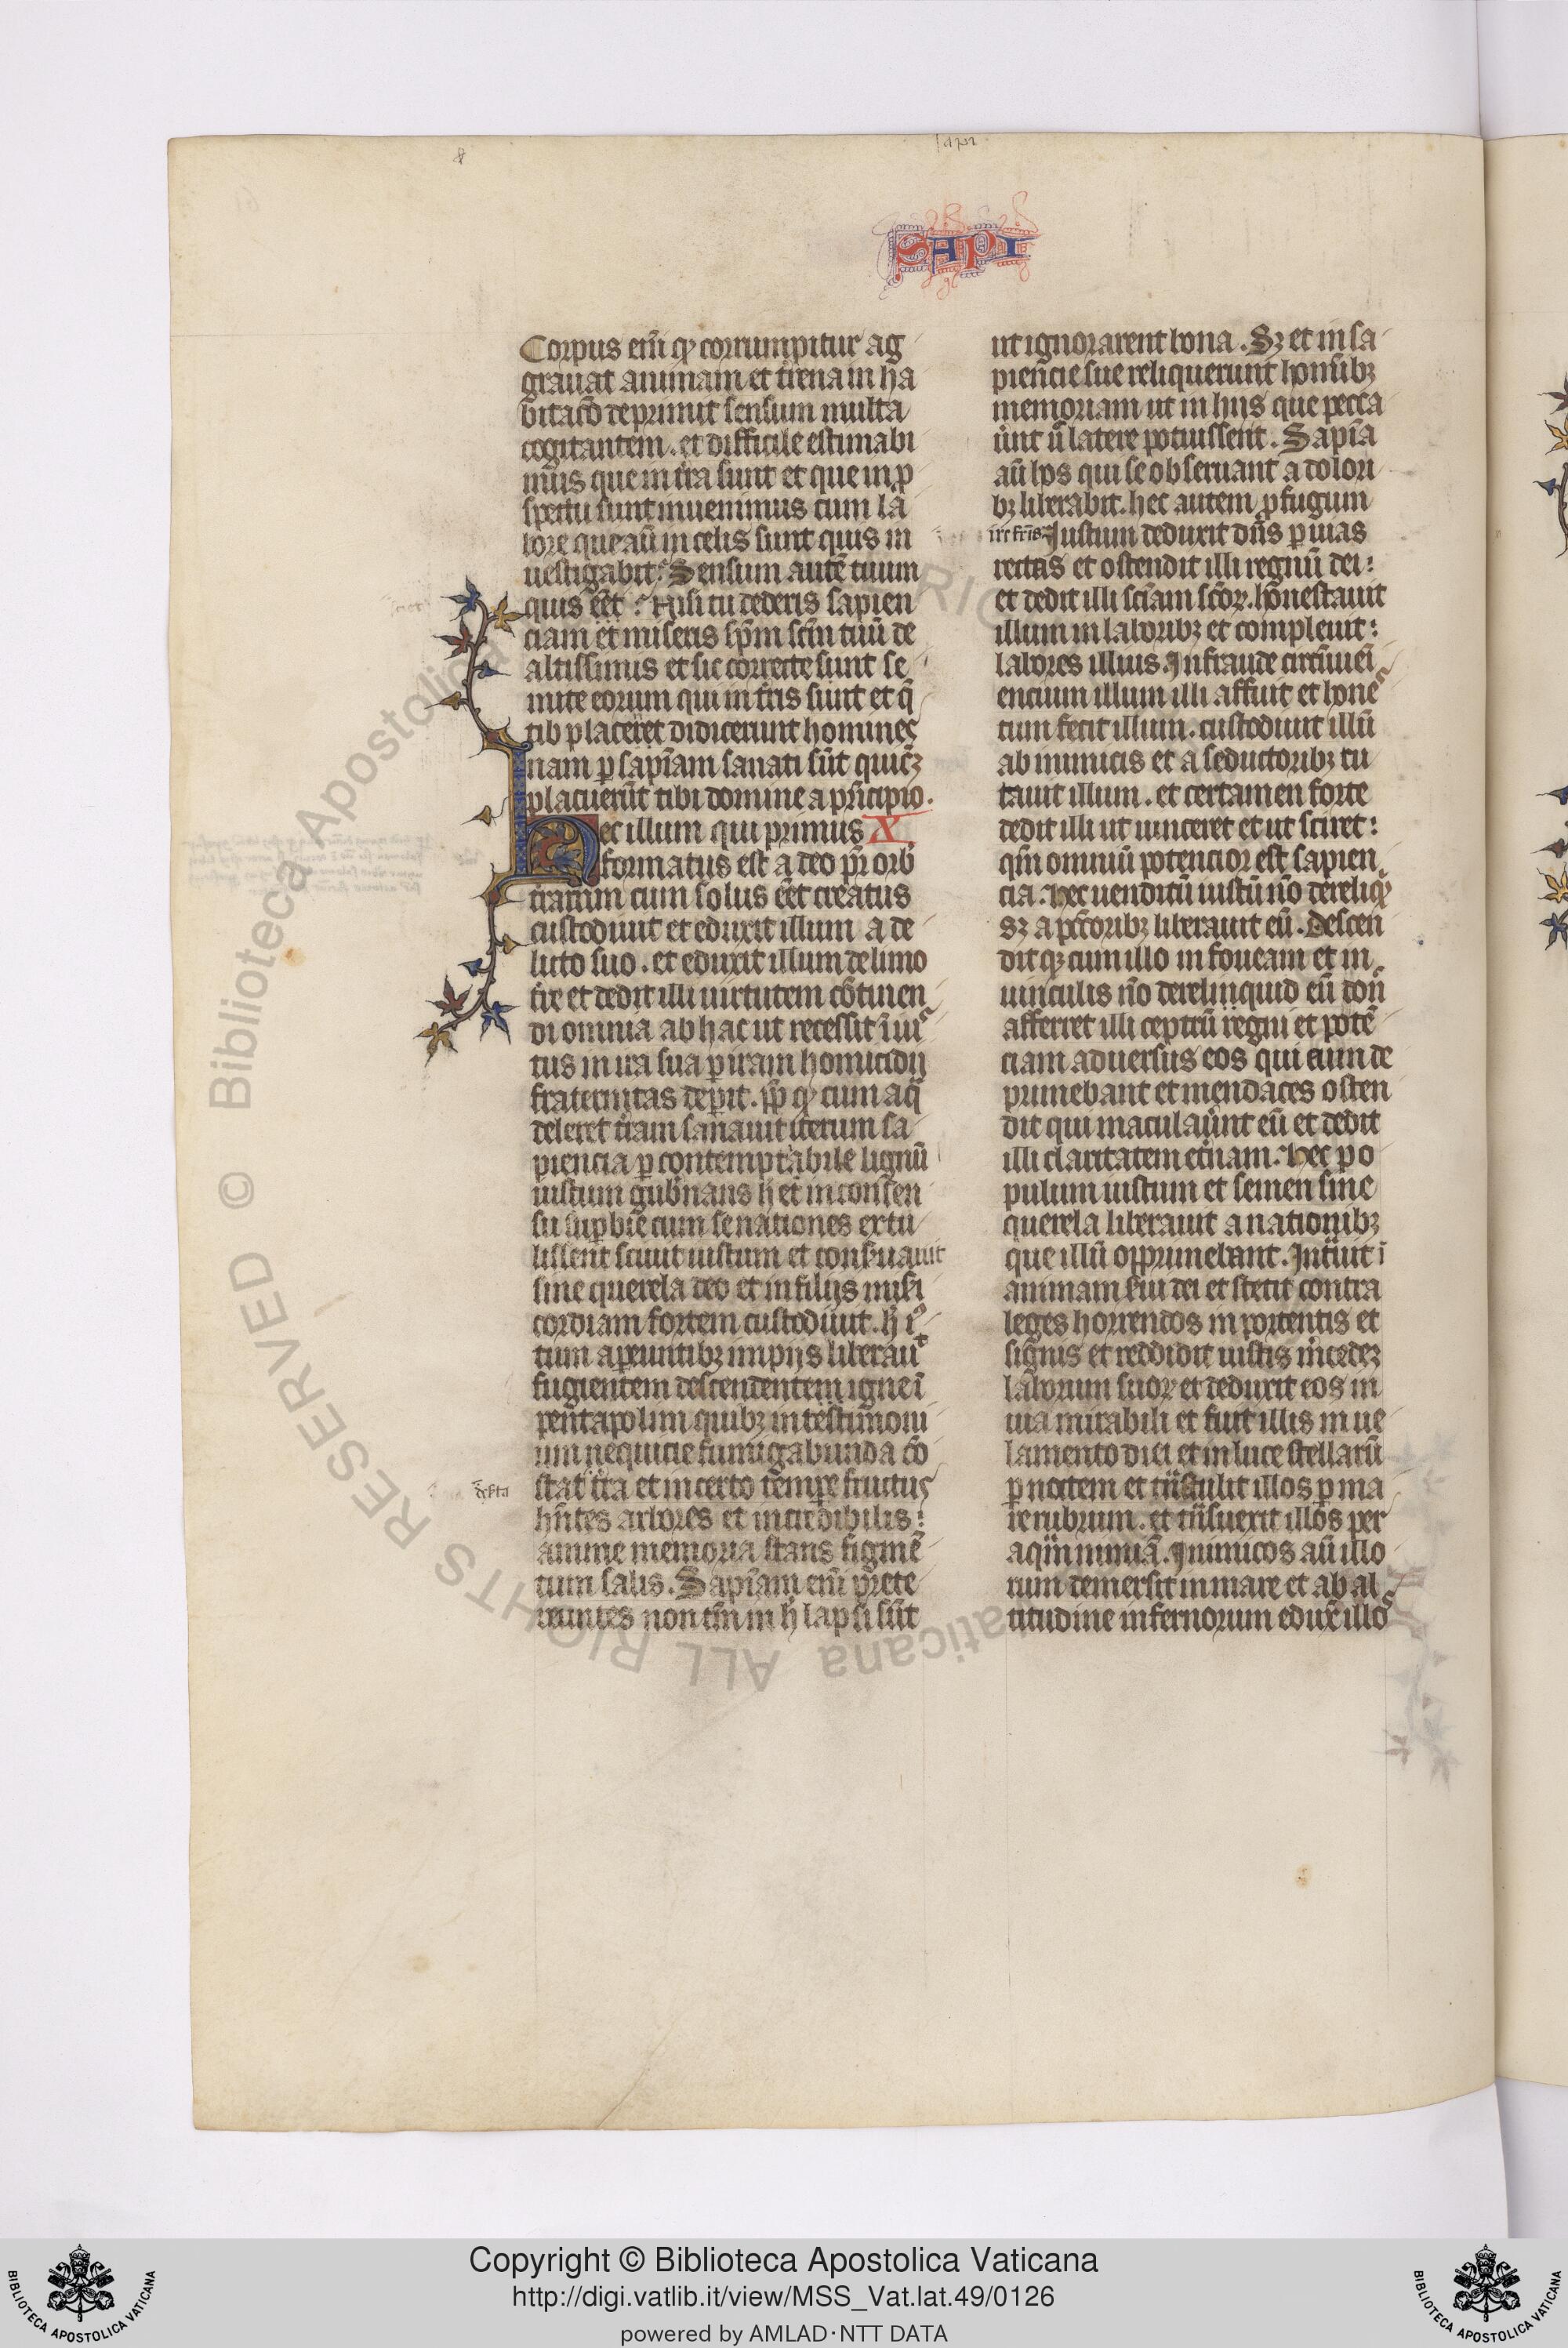 SAPI
Corpus em̄ qͥ corrumpitur ag
grauat animam et tͥrena in ha
bitaco̅ deprimit sensum multa
cogitantem. et difficile estimabi
mus que in tͥra sunt et que in ꝓ
spectu sunt inuenimus cum la
bore que au̅ in celis sunt quis in
uestigabit? Sensum aute̅ tuum
quis e̅et? Nisi tu dederis sapien
ciam et miseris sp̅m sc̅m tuu̅ de
altissimis et sic correcte sunt se
mite eorum qui in tͥris sunt et q̅
tib placeret didicerunt homines
nam ꝑ sapi̅am sanati su̅t quicꝫ
placueru̅t tibi domine a pͥncipio.
Hec illum qui primus X
formatus est a deo pr̅ orb
tͥrarum cum solus e̅et creatus
custodiuit et eduxit illum a de
licto suo. et eduxit illum de limo
tͥre et dedit illi uirtutem co̅tinen
di omnia ab hac ut recessit i̅iuˢ
tus in ira sua ꝑ iram homicidij
fraternitas deꝑit. ꝓp̅ qͥ cum aq̅
deleret tͥram sanauit iterum sa
piencia ꝑ contemptabile lignu̅
iustum gub̅nans h̅ et in consen
su suꝑbie cum se nationes extu
lissent sciuit iustum et conẜuauit
sine querela deo et in filijs miẜi
cordiam fortem custodiuit. h̅ iˢ
tum a ꝑeuntibꝫ impijs liberauͭ
fugientem descendentem igne i̅
pentapolim quibꝫ in testimoni
um nequicie fumigabunda co̅
stat tͥra et incerto tempꝛe fructus
h̅ntes arbores et incredibilis:
anime memoria stans figme̅
tum salis. Sapi̅am em̄ pͥrete
reuntes non tm̅ in h̅ lapsi su̅t
ut ignorarent bona. Sꝫ et in sa
piencie sue reliquerunt homi̅bꝫ
memoriam ut in hijs que pecca
uͥnt n̅ latere potuissent. Sapi̅a
au̅ hos qui se obseruant a dolori
bꝫ liberabit. hec autem ꝓfugum
ire fr̅is Iustum deduxit dn̅s ꝑ uias
rectas et ostendit illi regnu̅ dei:
et dedit illi sci̅am sc̅oꝝ. honestauit
illum in laboribꝫ et compleuit:
labores illius. In fraude circu̅ueni
encium illum illi affuit et honeˢ
tum fecit illum. custodiuit illu̅
ab inimicis et a seductoribꝫ tu
tauit illum. et certamen forte
dedit illi ut uinceret et ut sciret:
qm̅ omniu̅ potencior est sapien
cia. Hec uenditu̅ iustu̅ no̅ dereliqͥ
sꝫ a pcc̅toribꝫ liberauit eu̅. Descen
ditqꝫ cum illo in foueam et in
uinculis no̅ derelinquid eu̅ donͨ
afferret illi ceptru̅ regni et pote̅
ciam aduersus eos qui eum de
primebant et mendaces osten
dit qui maculauͥnt eu̅ et dedit
illi claritatem etͥnam. Hec po
pulum iustum et semen sine
querela liberauit a nationibꝫ
que illu̅ opprimebant. Intͣuit i̅
animam ẜui dei et stetit contra
reges horrendos in portentis et
signis et reddidit iustis mͥcedeꝫ
laborum suoꝝ et deduxit eos in
uia mirabili et fuit illis in ue
lamento diei et in luce stellaru̅
ꝑ noctem et tͣnstulit illos ꝑ ma
re rubrum. et tͣnsuexit illos per
aqͣm nimia̅. Inimicos au̅ illo
rum demersit in mare et ab al
titudine infernorum edux̅ illoˢ